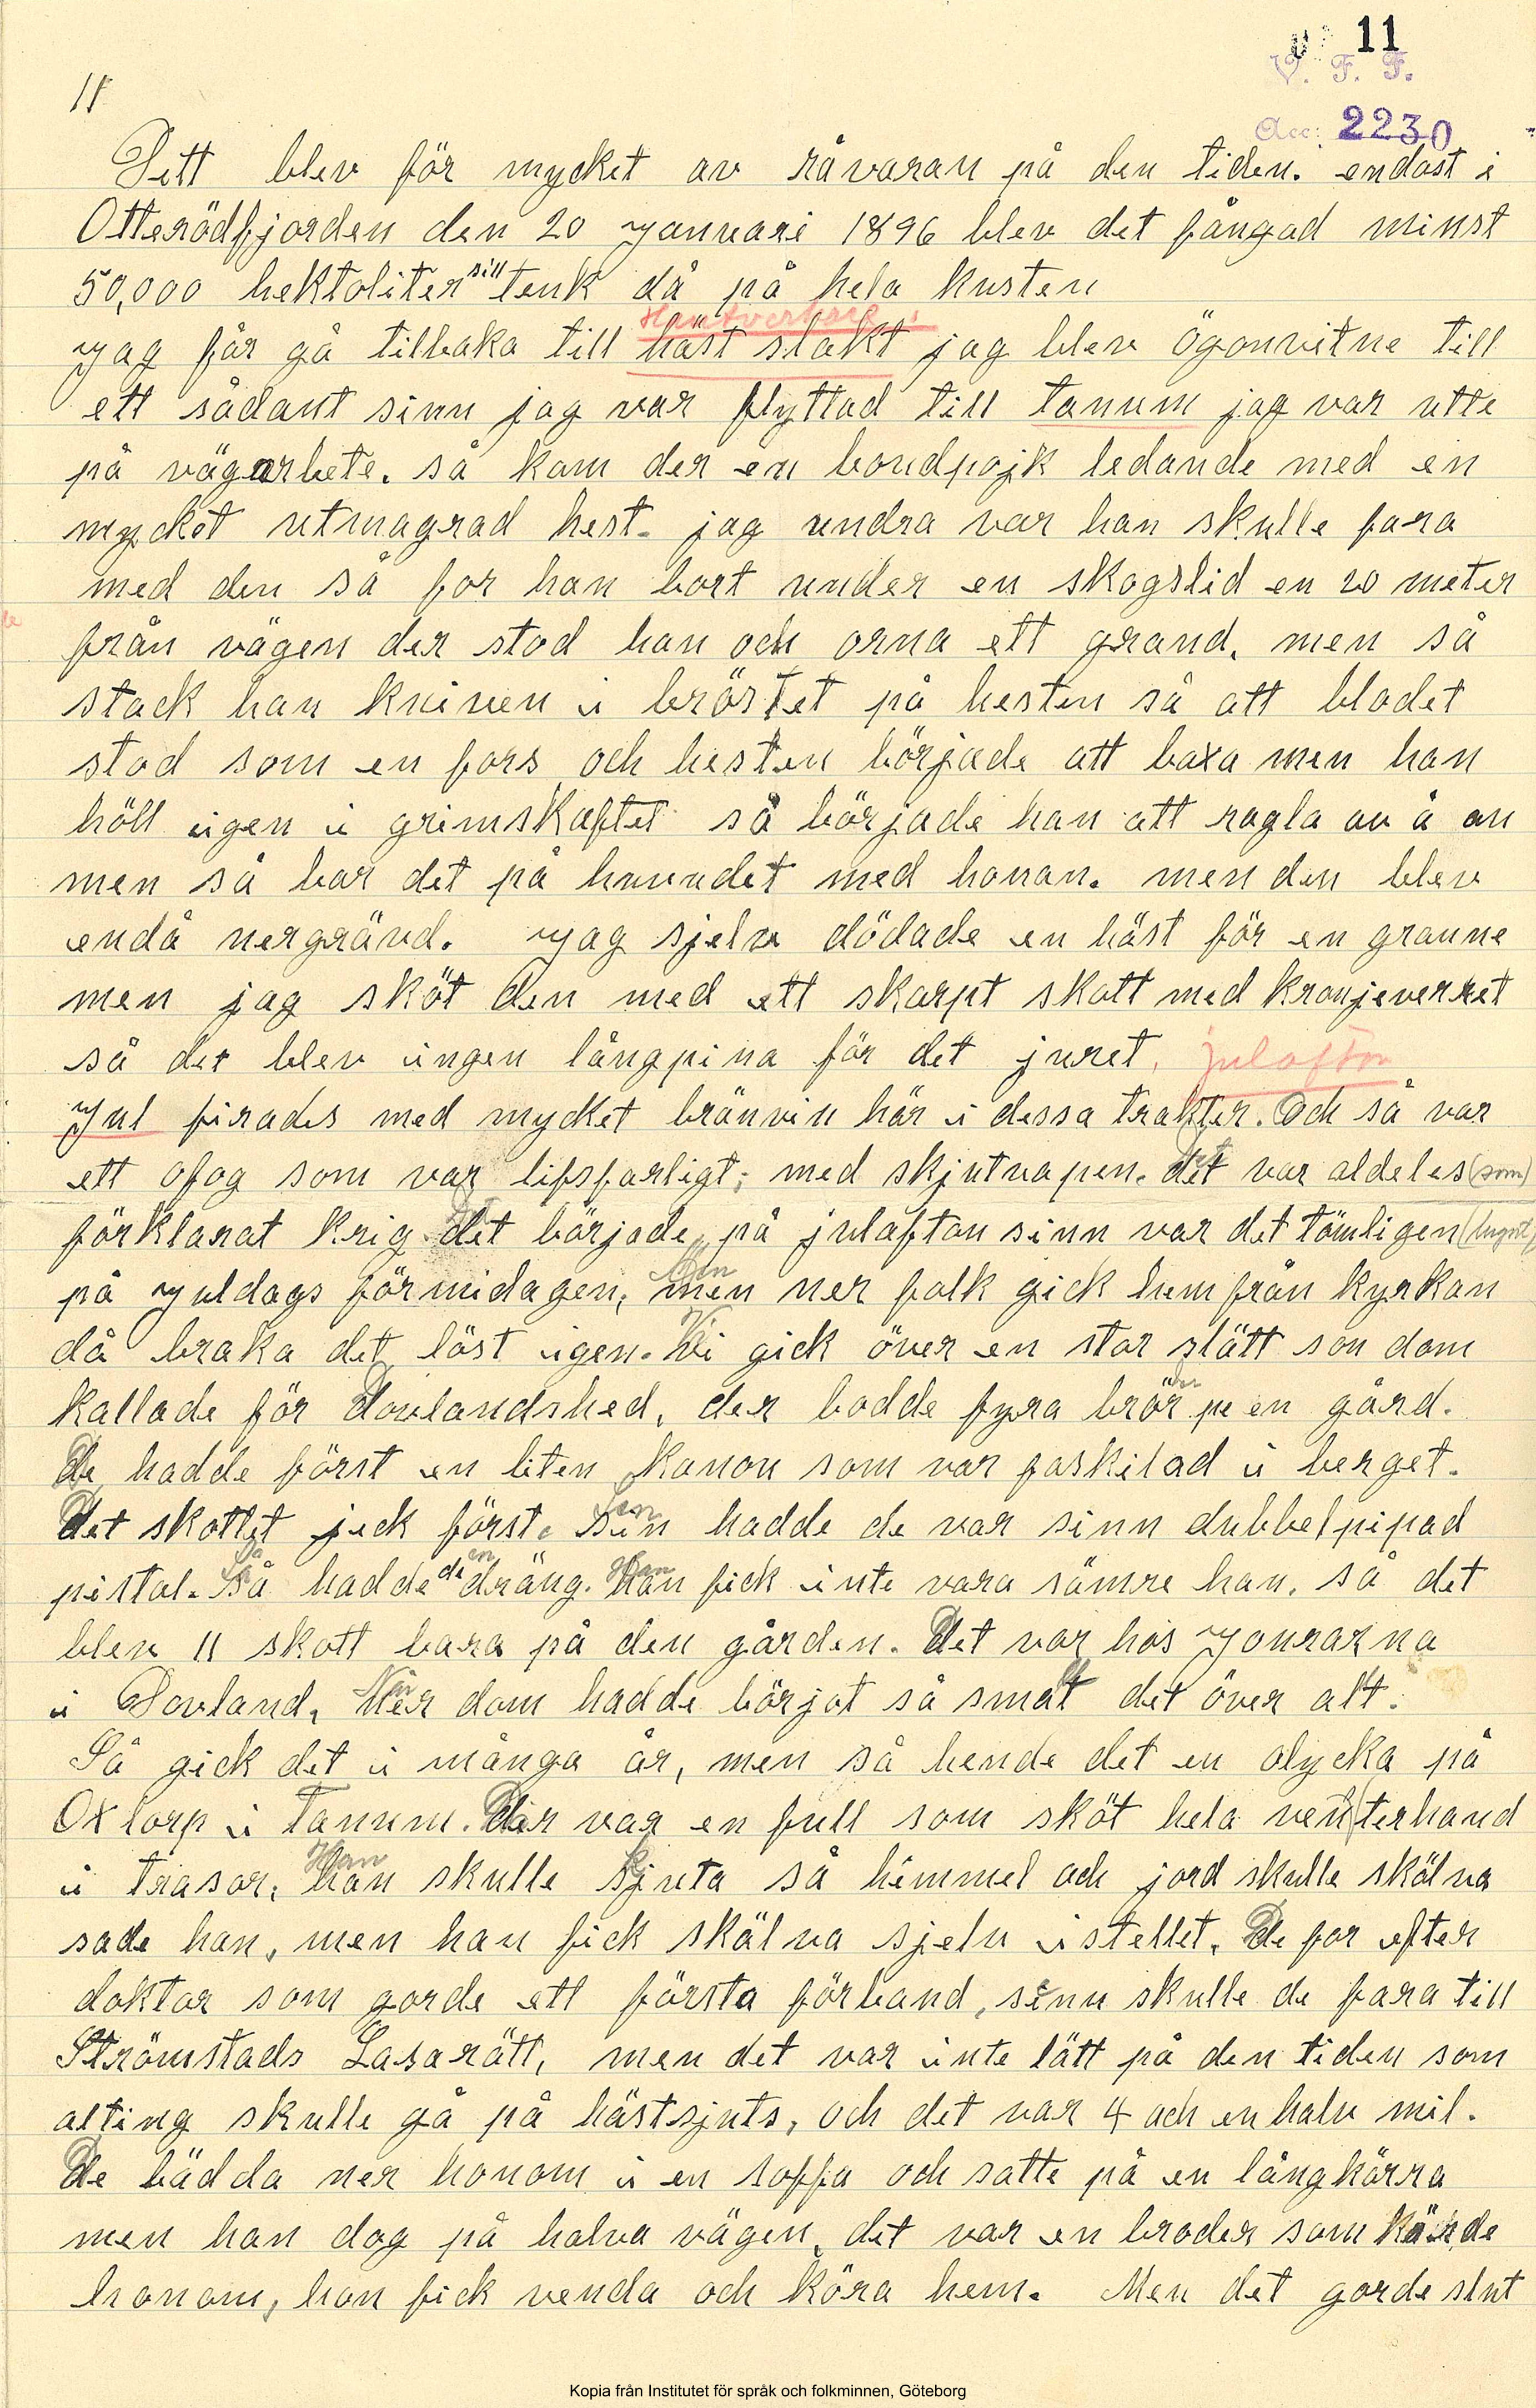 11
V. F. F.
11
Acc: 2230
Dett blev för mycket av råvaran på den tiden. endast i
Otterödfjorden den 20 januari 1896 blev det fångad minst
50,000 hektoliter sill tenk då på hela kusten
Hantverkare
jag får gå tilbaka till häst slakt jag blev ögonvitne till
ett sådant sinn jag var flyttad till tanum jag var utte
på vägarbete. så kom der en bondpojk ledande med en
mycket utmagrad hest. jag undra var han skulle fara
med den så for han bort under en skogslid en 20 meter
från vägen der stod han och orna ett grand, men så
stack han kniven i bröstet på hesten så att blodet
stod som en fors och hesten började att baxa men han
höll igen i grimskaftet så började han att ragla av å an
men så bar det på huvudet med honan. men den blev
endå nergrävd. Jag sjelv dödade en häst för en granne
men jag sköt den med ett skarpt skott med kronjeverret
så det blev ingen långpina för det juret. julafton
Jul firades med mycket bränvin här i dessa trakter. Och så var
ett ofog som var lifsfarligt; med skjutvapen. det var aldeles (som)
förklarat krig det började på julafton sinn var det tämligen (lugnt)
på Juldags förmidagen, men ner folk gick hem från kyrkan
då braka det löst igen. Vi gick över en stor slätt son dom
kallade för Dovlandshed, der bodde fyra bröder på en gård.
De hadde först en liten kanon som var faskilad i berget.
Det skottet jeck först. Sen hadde de var sinn dubbelpipad
pistol. Så hadde de en dräng. Han fick inte vara sämre han, så det
blev 11 skott bara på den gården. Det var hos Jonrarna
i Dovland, När dom hadde börjat så smalt det över alt.
Så gick det i många år, men så hende det en olycka på
Oxtorp i Tanum. Där var en full som sköt hela venterhand
i trasor, Han skulle skjuta så himmel och jord skulle skälva
sade han, men han fick skälva sjelv istellet. De for efter
doktor som gorde ett första förband, sinn skulle de fara till
Strömstads Lasarätt, men det var inte lätt på den tiden som
alting skulle gå på hästsjuts, och det var 4 och en halv mil.
De bädda ner honom i en soffa och satte på en långkärra
men han dog på halva vägen, det var en broder som körde
honom, han fick venda och köra hem. Men det gorde slut
Kopia från Institutet för språk och folkminnen, Göteborg